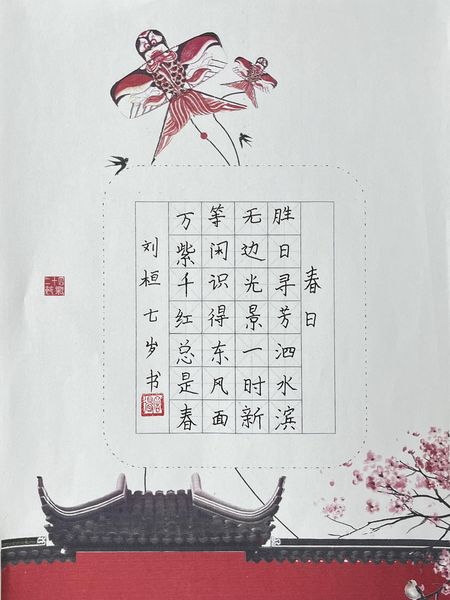 春日
胜日寻芳泗水滨
无边光景一时新
等闲识得东风面
万紫千红总是春
刘桓七岁书